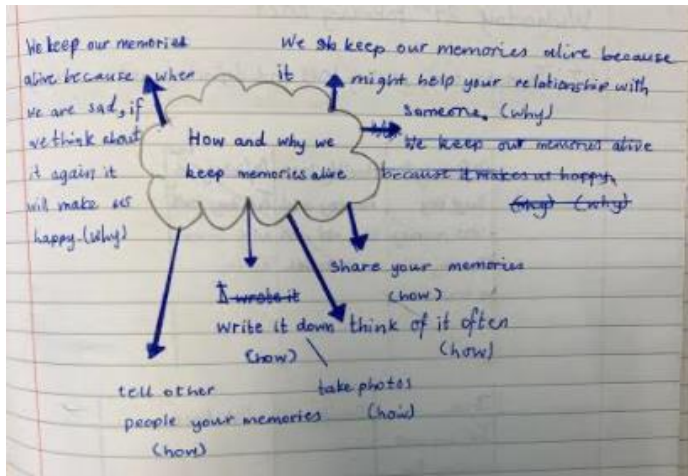 We keep our memories
alive because when
we are sad, if
we think about
it again it
will make us
happy. (why)
We keep our memories alive because
it might help your relationship with
someone. (why)
How and why we
keep memories alive
We keep our memories alive
because it makes us happy.
(why)
share your memories
(how)
I wrote it
write it down
(how)
think of it often
(how)
take photos
(how)
tell other
people your memories
(how)